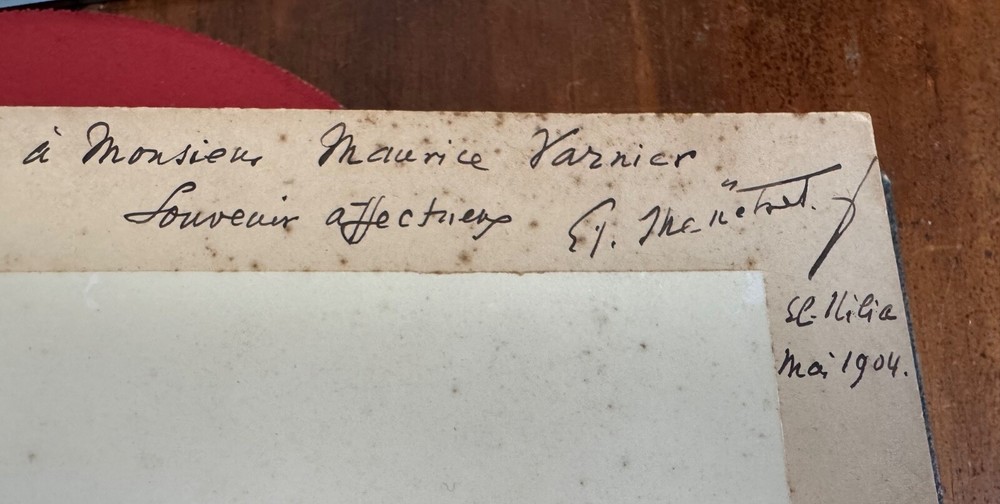 à Monsieur Maurice Varnier
Souvenir affectueux
El-Milia
Mai 1904.